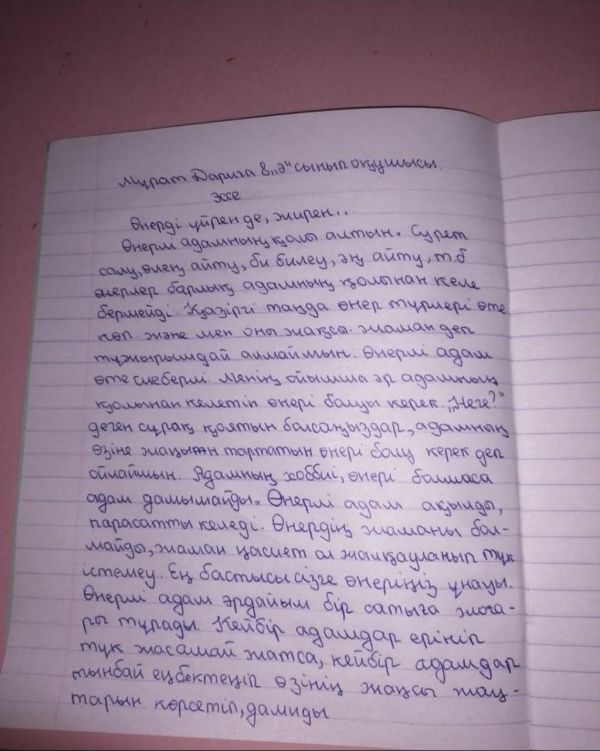 Мұрат Дариға 8 „ә" сынып оқушысы.
эссе
Өнерді үйрен де, жирен...
Өнерлі адамның қолы алтын. Сурет
салу, өлең айту, би билеу, ән айту, т.б
өнерлер барлық адамның қолынан келе
бермейді. Қазіргі таңда өнер түрлері өте
көп және мен оны жақсы жаман деп
тұжырымдай алмаймын. Өнерлі адам
өте шебер. Менің ойымша әр адамның
қолынан келетін өнері болуы керек. „Неге?"
деген сұрақ қоятын болсаңыздар, адамның
өзіне жақын тартатын өнері болу керек деп
ойлаймын. Адамның хоббиі, өнері болмаса
адам дамымайды. Өнерлі адам ақылды,
парасатты келеді. Өнердің жаманы бол-
майды, жаман қасиет ол жалқауланып түк
істемеу. Ең бастысы сізге өнеріңіз ұнауы.
Өнерлі адам әрдайым бір сатыға жоға-
ры тұрады. Кейбір адамдар ерініп
түк жасамай жатса, кейбір адамдар
тынбай еңбектеніп өзінің жақсы жақ-
тарын көрсетіп, дамиды